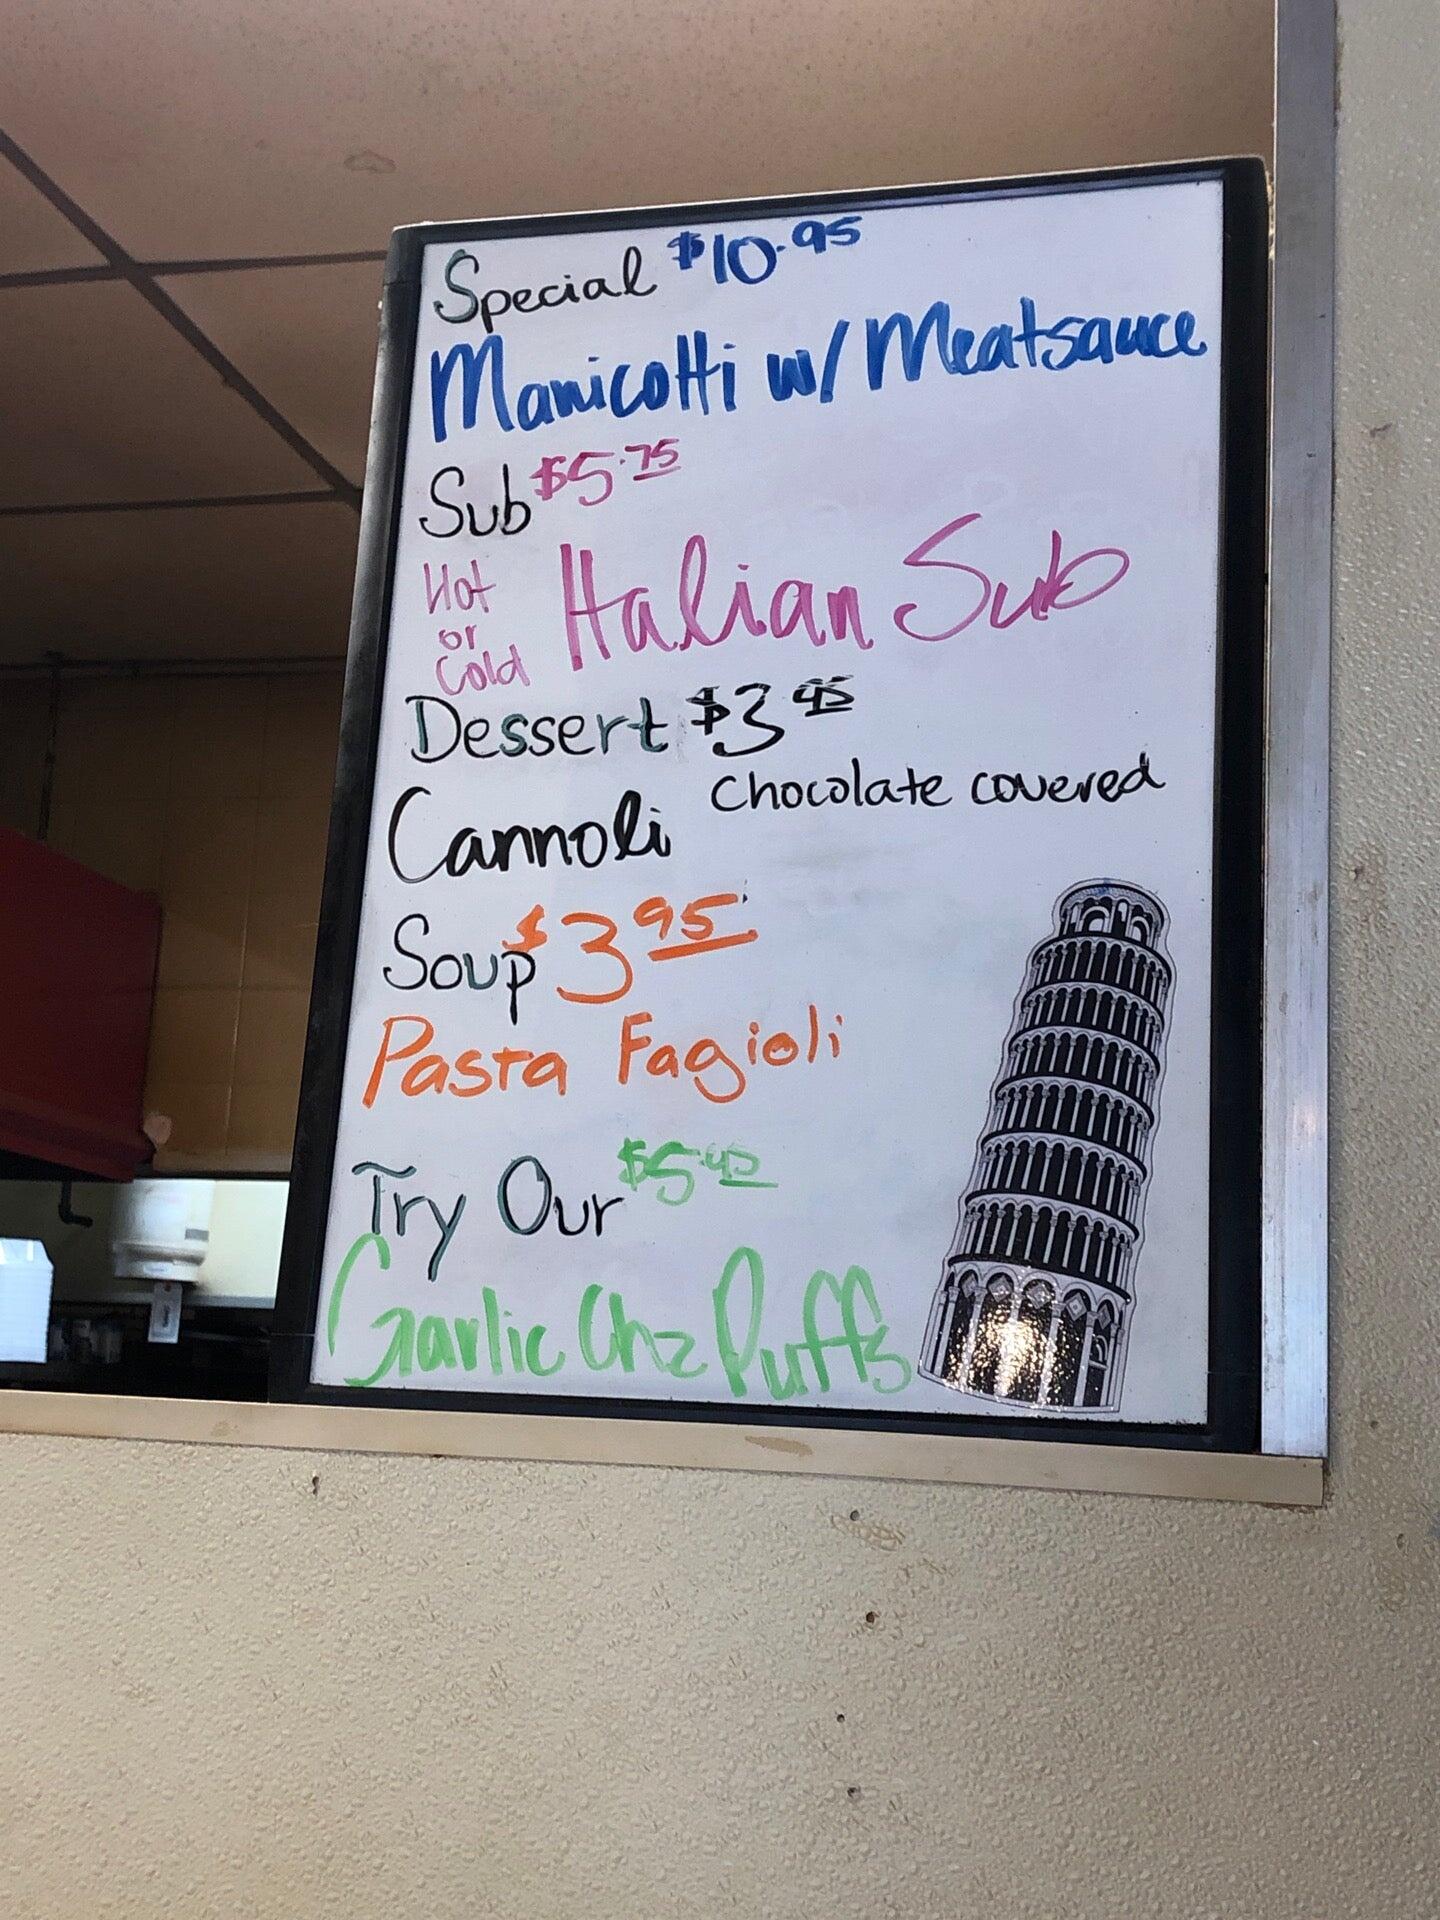 Special $10.95
Manicotti w/ Meatsauce
Sub $5.75
Hot or Cold Italian Sub
Dessert $3
Cannoli Chocolate covered
Soup $3.95
Pasta Fagioli
Try Our
Garlic Chz Puffs